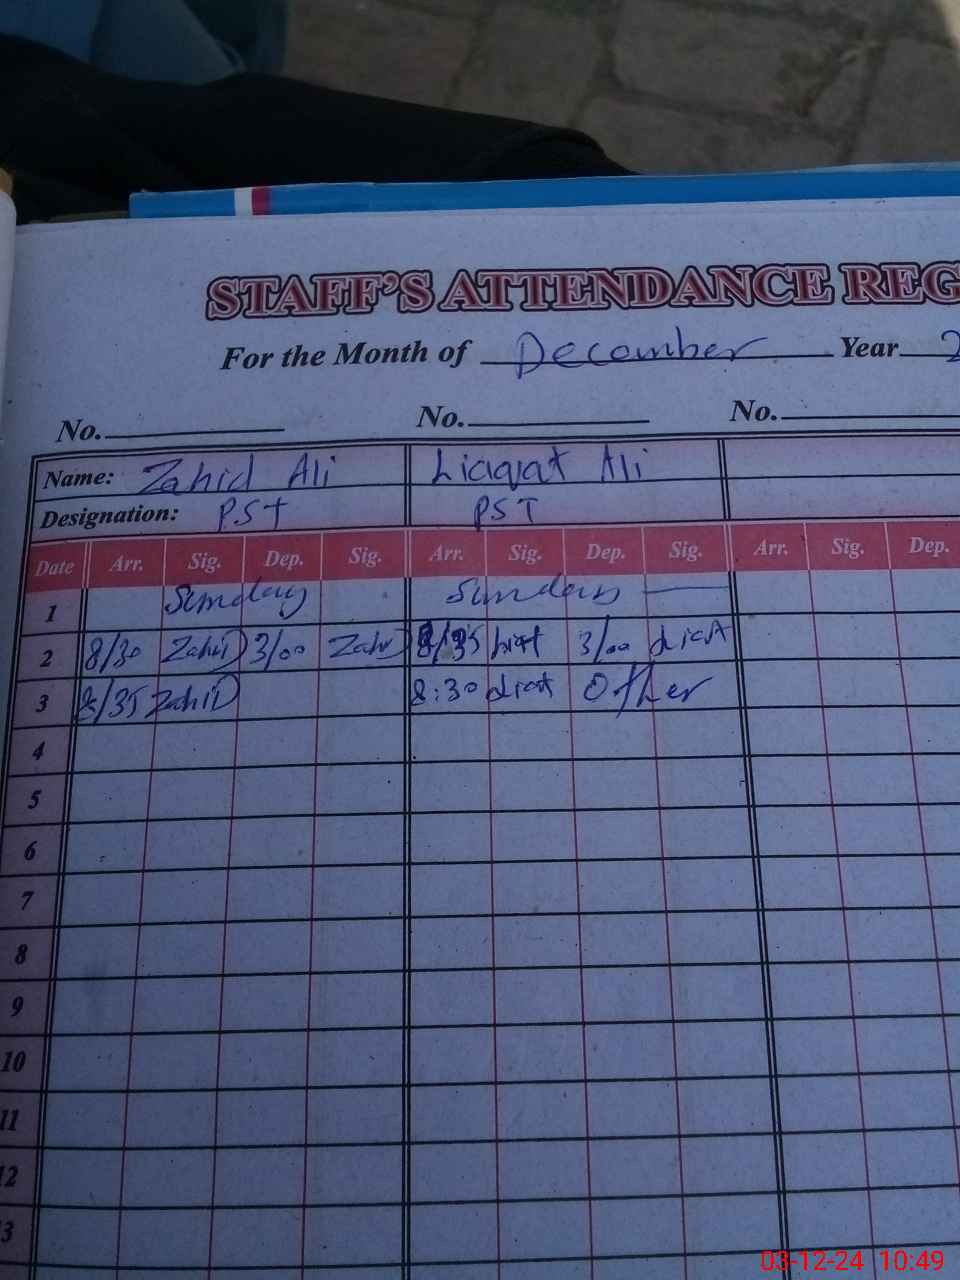 STAFF'S ATTENDANCE REG
For the Month of December Year 2
No. No. No.
Name: Zahid Ali Liaqat Ali
Designation: PST PST
Date Arr. Sig. Dep. Sig. Arr. Sig. Dep. Sig. Arr. Sig. Dep.
1 Sunday Sunday
2 8/30 Zahid 3/00 Zahid 3/00 Liaqt
3 8/35 Zahid 8:30 Liaqt Other
4
5
6
7
8
9
10
11
12
13
03-12-24 10:49